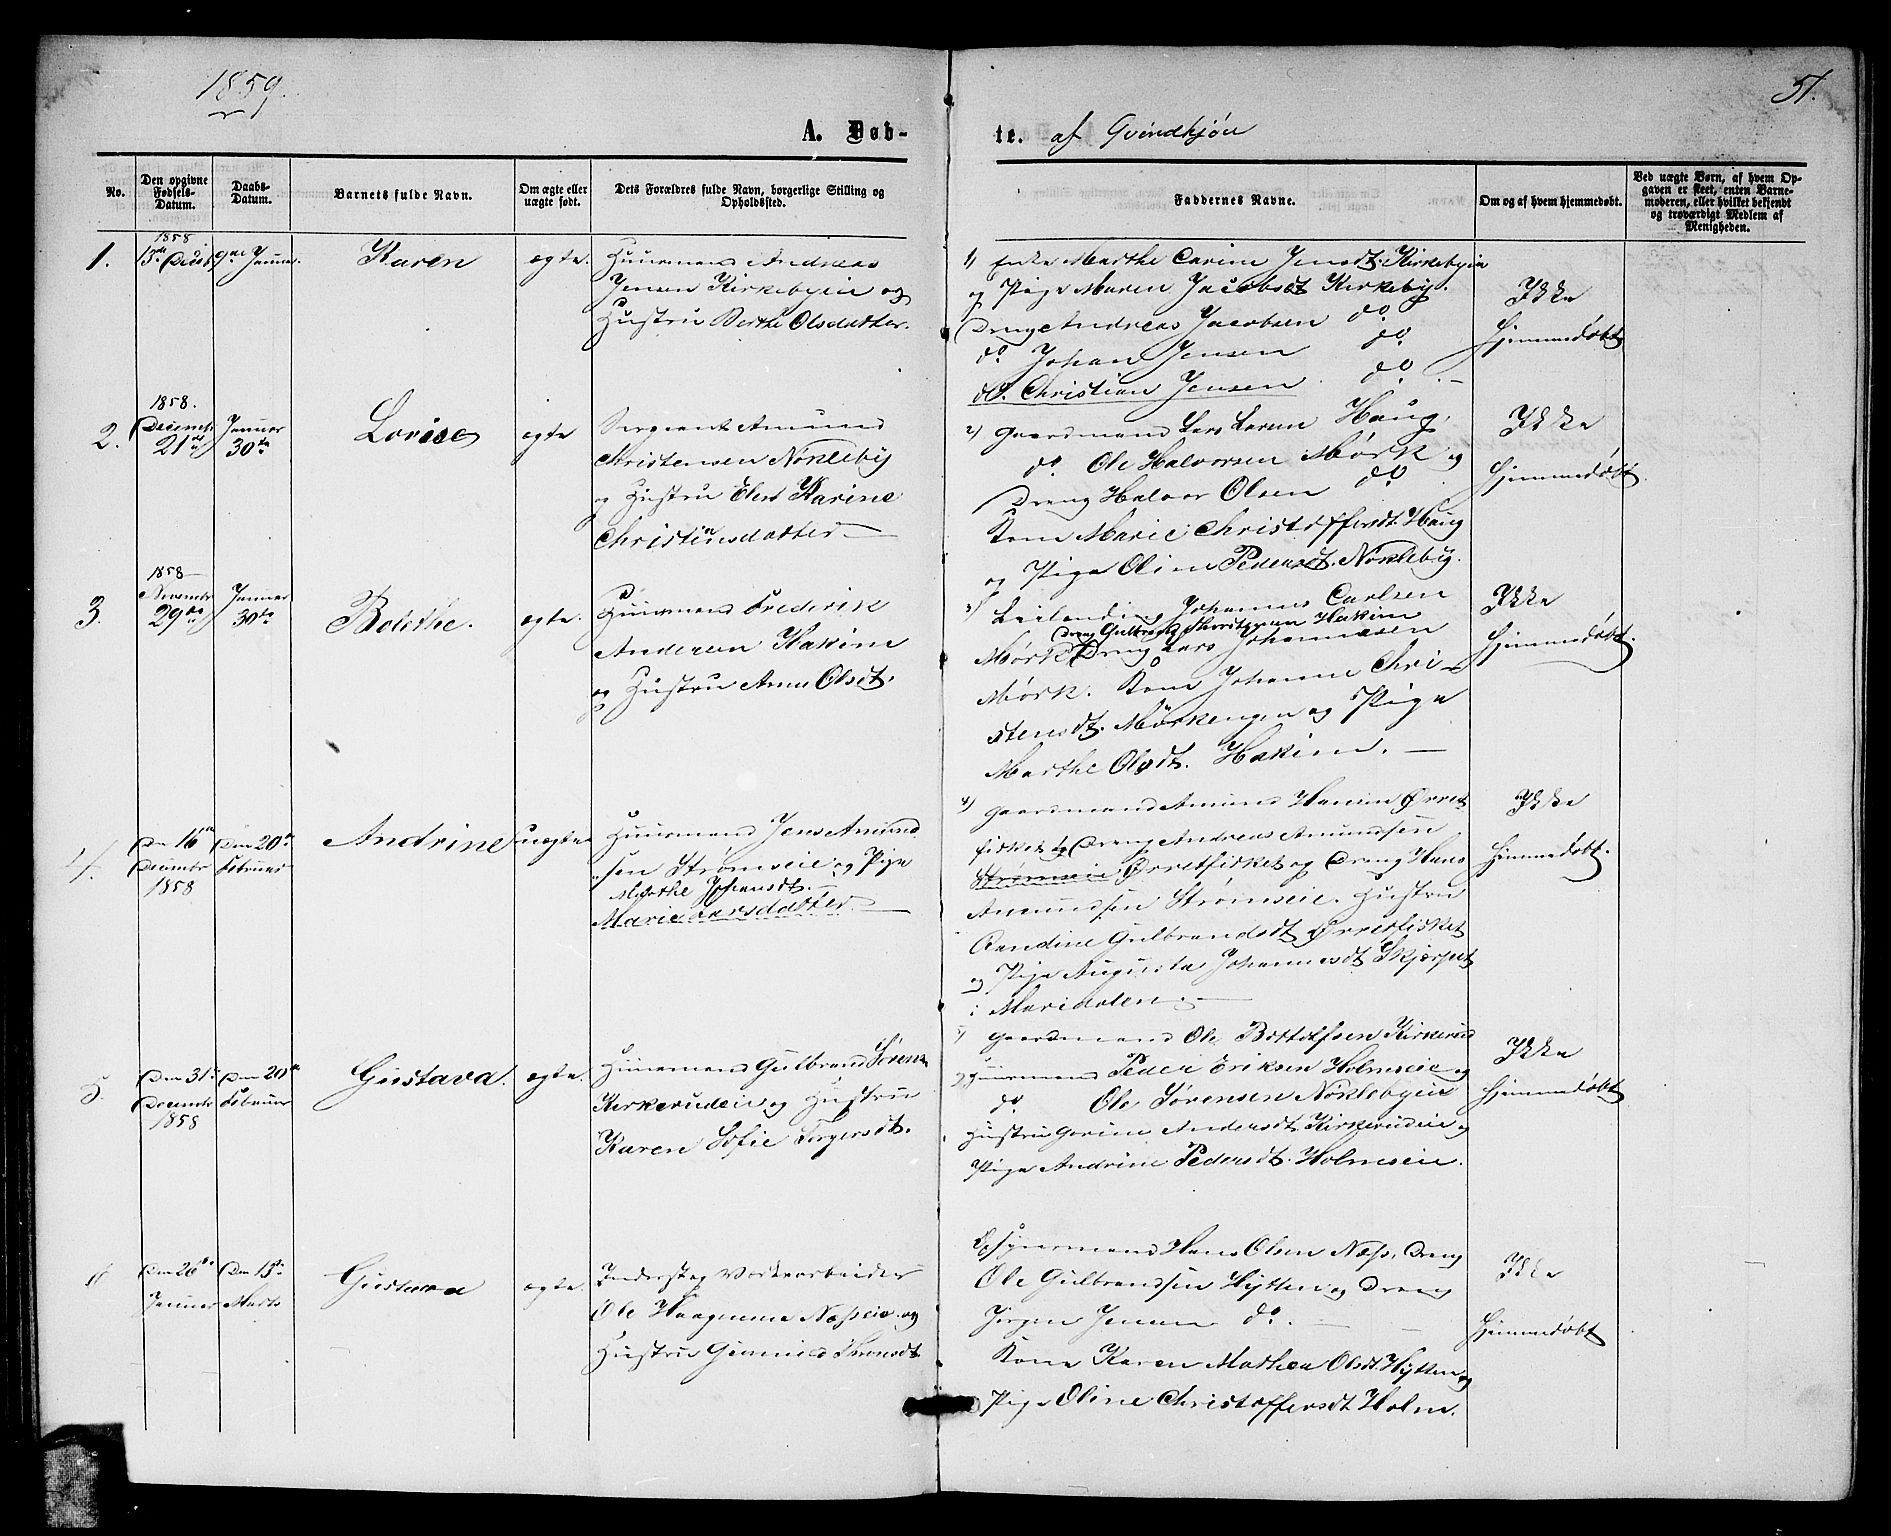 1859.
51.
A. Døb-
te. af Qvindkjøn
No.
Den opgivne Fødsels-Datum.
Daabs-Datum.
Barnets fulde Navn.
Om ægte eller uægte født.
Dets Forældres fulde Navn, borgerlige Stilling og Opholdssted.
Faddernes Navne.
Om og af hvem hjemmedøbt.
Ved uægte Børn, af hvem Opgaven er skeet, enten Barnemoderen, eller hvilket bekjendt og troværdigt Medlem af Menigheden.
1.
1858
13de Decb
9de Januar.
Karen
ægte.
Huusmand Andreas
Jensen Kirkebyeie og
Hustru Berthe Olsdatter.
1) Enke Marthe Carine Jensdt. Kirkebyeie
og Pige Maren Jacobsdt Kirkeby.
Dreng Andreas Jacobsen do.
do. Johan Jensen do.
do. Christian Jensen do. —
Ikke
Hjemmedøbt
2.
1858.
Decembr
21de
Januar
30te
Lovise
ægte
Sergeant Amund
Christensen Nøkleby
og Hustru Elen Karine
Christiansdatter —
2) Gaardmand Lars Larsen Haug,
do. Ole Halvorsen Mørk og
Dreng Halvor Olsen do
Kone Marie Christoffersdt. Haug
og Pige Oline Pedersdt. Nøkleby.
Ikke
Hjemmedøbt.
3.
1858 —
November
29de
Januar
30te
Bolethe.
ægte.
Huusmand Frederik
Andersen Hakim
og Hustru Anne Olsdt.
3) Leilending Johannes Carlsen
Dreng Gulbrand Hakim
Mørk Dreng Lars Johannesen
Mørk. Kone Johanne Chri-
stensdt. Mørkengen og Pige
Marthe Olsdt. Hakim. —
Ikke
Hjemmedøbt.
4.
Den 16de
Decembr
1858
Den 20de
Februar
Andrine
uægte
Huusmand Jens Amund
sen Strømseie og Pige
Marthe Johansdt. —
Marie Larsdatter —
4) Gaardmand Amund Hansen Ørret
fisket og Dreng Andreas Amundsen
Strømseie Ørretfisket og Dreng Hans
Amundsen Strømseie. Hustru
Randine Gulbrandsdt Ørretfisket
og Pige Augusta Johannesdt Skjerpet
i Maridalen. —
Ikke
Hjemmedøbt.
5.
Den 31te
Decembr
1858
Den 20de
Februar
Gustava.
ægte.
Huusmand Gulbrand Sørens.
Kirkerudeie og Hustru
Karen Sofie Torgersdt.
5) Gaardmand Ole Bottolfsen Kirkerud
Huusmand Peder Eriksen Holmseie og
do. Ole Sørensen Nøklebyeie
Hustru Gorine Andersdt. Kirkerudeie og
Pige Andrine Pedersdt. Holmseie.
Ikke
Hjemmedøbt
6
Den 26de
Januar
Den 13de
Marts
Gustava
ægte.
Inderst og Værksarbeider
Ole Haagensen Næsseie og
Hustru Gunnild Thronsdt.
Opsynsmand Hans Olsen Næss. Dreng
Ole Gulbrandsen Hytten og Dreng
Jørgen Jensen do. —
Kone Karen Mathea Olsdt. Hytten og
Pige Oline Christoffersdt. Holm.
Ikke
Hjemmedøbt